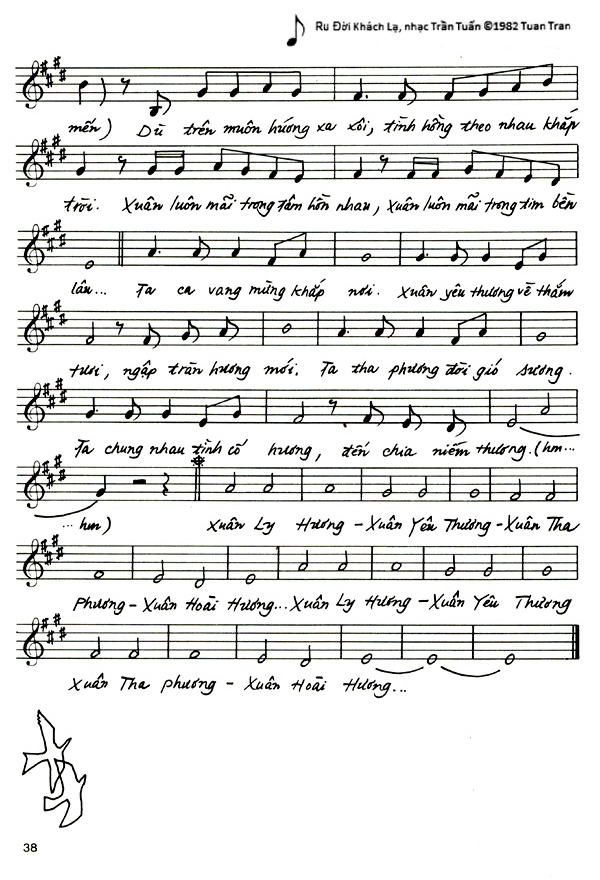 Ru Đời Khách Lạ, nhạc Trần Tuấn ©1982 Tuan Tran
mến) Dù trên muôn hướng xa xôi, tình hồng theo nhau khắp
trời. Xuân luôn mãi trong tâm hồn nhau, Xuân luôn mãi trong tim bền
lâu... Ta ca vang mừng khắp nơi. Xuân yêu thương về thắm
tươi, ngập tràn hương mới. Ta tha phương đời gió sương.
Ta chung nhau tình cố hương, đến chia niềm thương. (hm...
...hm) Xuân Ly Hương - Xuân Yêu Thương - Xuân Tha
Phương - Xuân Hoài Hương... Xuân Ly Hương - Xuân Yêu Thương
Xuân Tha phương - Xuân Hoài Hương...
38